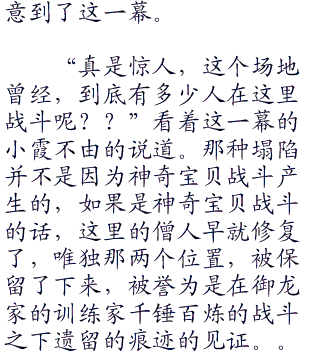 意到了这一幕。
“真是惊人，这个场地
曾经，到底有多少人在这里
战斗呢？？”看着这一幕的
小霞不由的说道。那种塌陷
并不是因为神奇宝贝战斗产
生的，如果是神奇宝贝战斗
的话，这里的僧人早就修复
了，唯独那两个位置，被保
留了下来，被誉为是在御龙
家的训练家千锤百炼的战斗
之下遗留的痕迹的见证。。